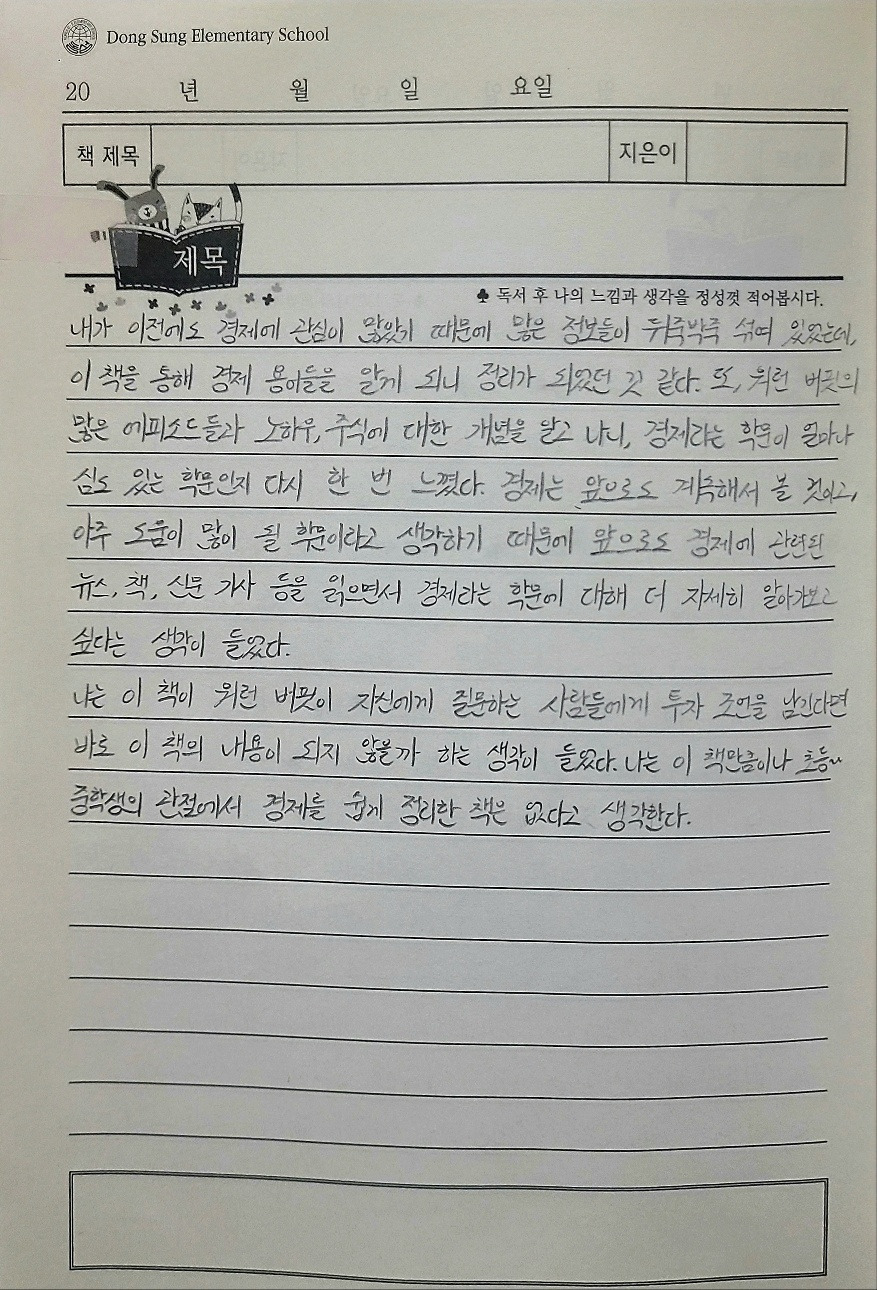 Dong Sung Elementary School
20 년 월 일 요일
책 제목 지은이
제목
♣ 독서 후 나의 느낌과 생각을 정성껏 적어봅시다.
내가 이전에도 경제에 관심이 많았기 때문에 많은 정보들이 뒤죽박죽 섞여 있었는데,
이 책을 통해 경제 용어들을 알게 되니 정리가 되었던 것 같다. 또, 워런 버핏의
많은 에피소드들과 노하우, 주식에 대한 개념을 알고 나니, 경제라는 학문이 얼마나
심도 있는 학문인지 다시 한 번 느꼈다. 경제는 앞으로도 계속해서 볼 것이고,
아주 도움이 많이 될 학문이라고 생각하기 때문에 앞으로도 경제에 관련된
뉴스, 책, 신문 기사 등을 읽으면서 경제라는 학문에 대해 더 자세히 알아가보고
싶다는 생각이 들었다.
나는 이 책이 워런 버핏이 자신에게 질문하는 사람들에게 투자 조언을 남긴다면
바로 이 책의 내용이 되지 않을까 하는 생각이 들었다. 나는 이 책만큼이나 초등~
중학생의 관점에서 경제를 쉽게 정리한 책은 없다고 생각한다.